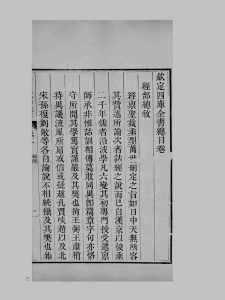 欽定四庫全書總目卷一
經部總敘
經稟聖裁垂型萬世刪定之旨如日中天無所容
其贊述所論次者詁經之說而已自漢京以後垂
二千年儒者沿波學凡六變其初專門授受遞稟
師承非惟詁訓相傳莫敢同異卽篇章字句亦恪
守所聞其學篤實謹嚴及其弊也拘王弼王肅稍
持異議流風所扇或信或疑越孔賈啖趙以及北
宋孫復劉敞等各自論說不相統攝及其弊也雜